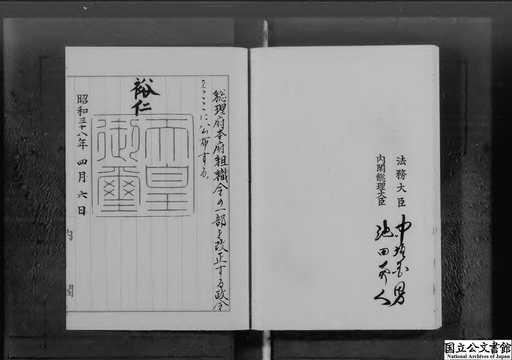 総理府本府組織令の一部を改正する政令
をここに公布する。
裕仁
天皇
御璽
昭和三十八年四月六日
内閣
法務大臣 中垣國男
内閣総理大臣 池田勇人
国立公文書館
National Archives of Japan